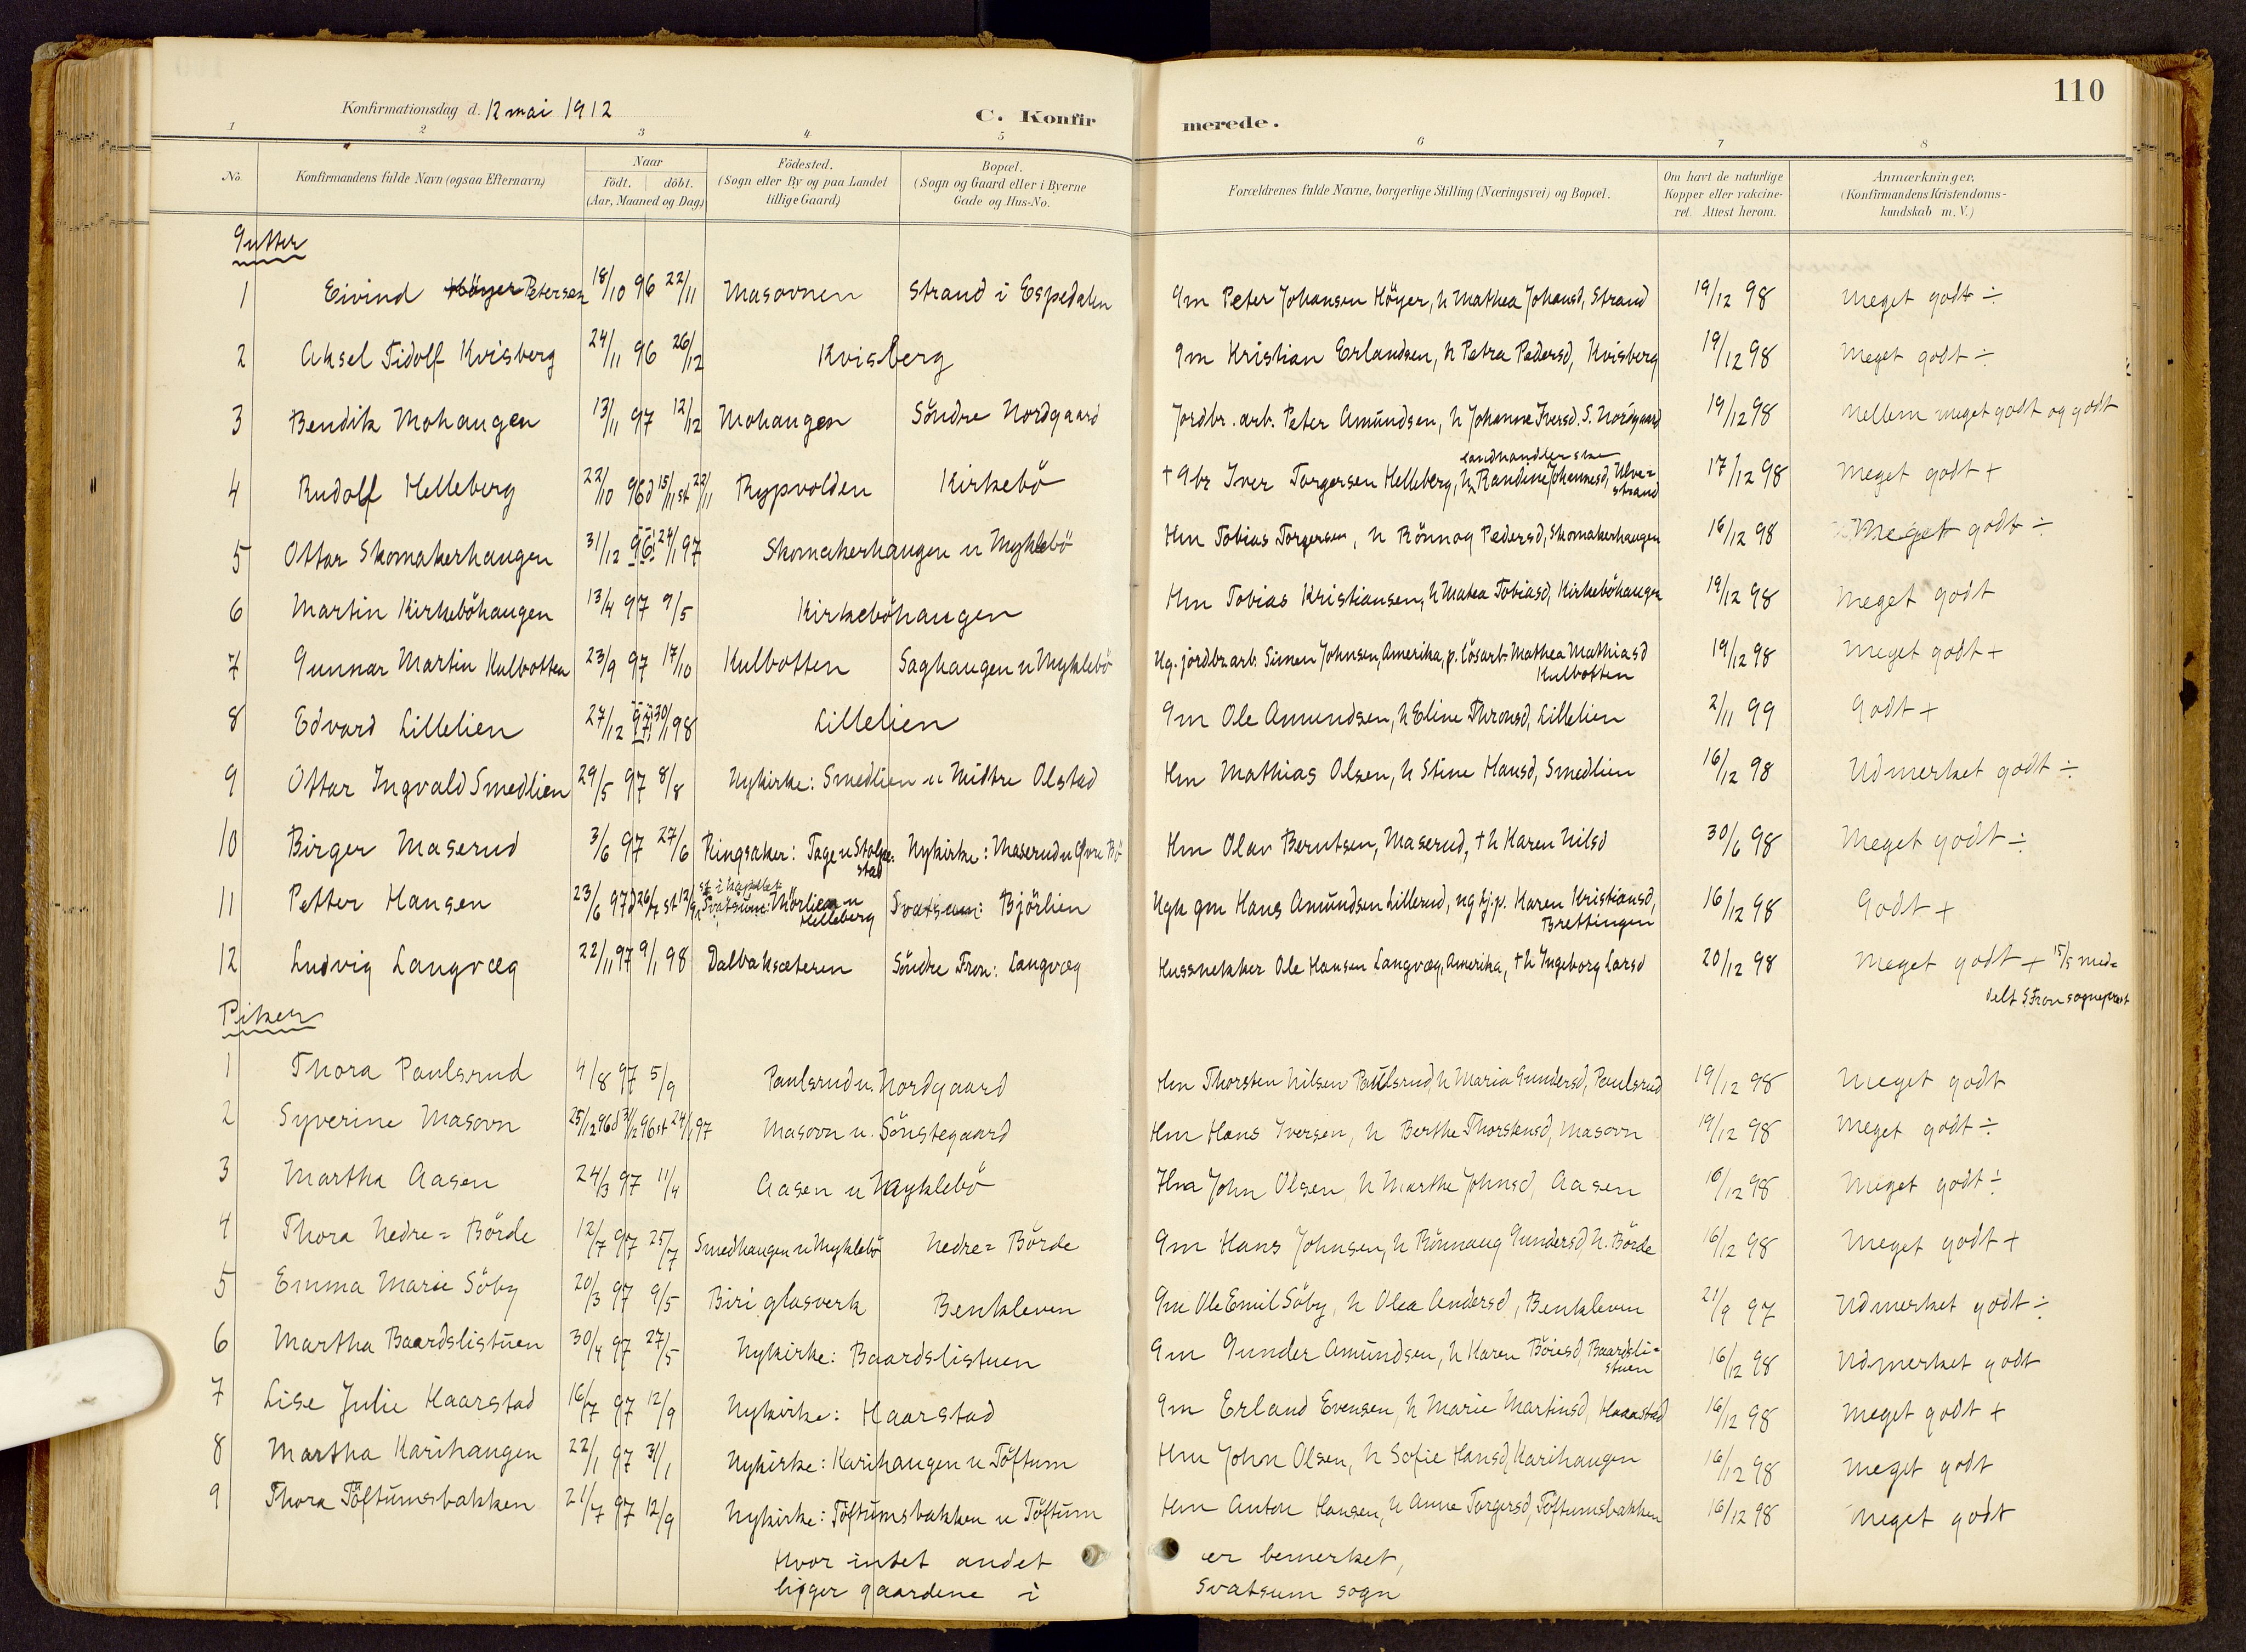 110
Konfirmationsdag d. 12 mai 1912
C. Konfirmerede.
1 2 3 4 5 6 7 8
No. Konfirmandens fulde Navn (ogsaa Efternavn) Naar födt. döbt. (Aar, Maaned og Dag) Födested. (Sogn eller By og paa Landet tillige Gaard) Bopæl. (Sogn og Gaard eller i Byerne Gade og Hus-No. Forældrenes fulde Navne, borgerlige Stilling (Næringsvei) og Bopæl. Om havt de naturlige Kopper eller vakcineret. Attest herom. Anmærkninger. (Konfirmandens Kristendomskundskab m. V.)
Gutter
1 Eivind Höyer Petersen 18/10 96 22/11 Masovnen Strand i Espedalen Gm Peter Johansen Höyer, h Mathea Johansd, Strand 19/12 98 Meget godt ÷
2 Aksel Tidolf Kvisberg 24/11 96 26/12 Kvisberg Gm Kristian Erlandsen, h Petra Pedersd, Kvisberg 19/12 98 Meget godt ÷
3 Bendik Mohaugen 13/11 97 12/12 Mohaugen Söndre Nordgaard Jordbr. arb. Peter Amundsen, h Johanne Iversd. S. Nordgaard 19/12 98 Mellem meget godt og godt
4 Rudolf Helleberg 22/10 96 d 15/11 st 22/11 Rypvolden Kirkebö + Gbr Iver Torgersen Helleberg, h landhandlerske Randine Johannesd, Ulvestrand 17/12 98 Meget godt +
5 Ottar Skomakerhaugen 31/12 96 24/1 97 Skomakerhaugen u Myklebö Hm Tobias Torgersen, h Rönnog Pedersd, Skomakerhaugen 16/12 98 Meget godt ÷
6 Martin Kirkeböhaugen 13/4 97 9/5 Kirkeböhaugen Hm Tobias Kristiansen, h Matea Tobiasd, Kirkeböhaugen 19/12 98 Meget godt
7 Gunnar Martin Kulbotten 23/9 97 17/10 Kulbotten Saghaugen u Myklebö Ug. jordbr arb. Simen Johnsen, Amerika, p. lösarb. Mathea Mathiasd Kulbotten 19/12 98 Meget godt +
8 Edvard Lillelien 27/12 97 30/1 98 Lillelien Gm Ole Amundsen, h Eline Thronsd, Lillelien 2/11 99 Godt +
9 Ottar Ingvald Smedlien 29/5 97 8/8 Nykirke: Smedlien u Midtre Olstad Hm Mathias Olsen, h Stine Hansd, Smedlien 16/12 98 Udmerket godt ÷
10 Birger Maserud 3/6 97 27/6 Ringsaker: Tage u Stolpestad Nykirke: Maserud u Övre Bö Hm Olav Berntsen, Maserud, + h Karen Nilsd 30/6 98 Meget godt ÷
11 Petter Hansen 23/6 97 d 26/7 st 12/9 st i kapellet Svatsum: Mörlien u Helleberg Svatsum: Björlien Ugk gm Hans Amundsen Lillerud, ug tj. p. Karen Kristiansd, Brettingen 16/12 98 Godt +
12 Ludvig Langvæg 22/11 97 9/1 98 Dalbaksæteren Söndre Fron: Langvæg Hussnekker Ole Hansen Langvæg, Amerika, + h Ingeborg Larsd 20/12 98 Meget godt + 15/5 meddelt S Fron sogneprest
Piker
1 Thora Paulsrud 4/8 97 5/9 Paulsrud u. Nordgaard Hm Thorsten Nilsen Paulsrud, h Maria Gundersd, Paulsrud 19/12 98 Meget godt
2 Syverine Masovn 25/12 96 d 31/12 96 st 24/1 97 Masovn u. Sönstegaard Hm Hans Iversen, h Berthe Thorstensd, Masovn 19/12 98 Meget godt ÷
3 Martha Aasen 24/3 97 11/4 Aasen u Myklebö Hm John Olsen, h Marthe Johnsd, Aasen 16/12 98 Meget godt ÷
4 Thora Nedre = Börde 12/7 97 25/7 Smedhaugen u Myklebö Nedre = Börde Gm Hans Johnsen, h Rönnaug Gundersd, N. Börde 16/12 98 Meget godt +
5 Emma Marie Söby 20/3 97 9/5 Biri glasverk Benkleven Gm Ole Emil Söby, h Olea Andersd, Benkleven 21/9 97 Udmerket godt ÷
6 Martha Baardslistuen 30/4 97 27/5 Nykirke: Baardslistuen Gm Gunder Amundsen, h Karen Böiesd, Baardslistuen 16/12 98 Udmerket godt
7 Lise Julie Haarstad 16/7 97 12/9 Nykirke: Haarstad Gm Erland Evensen, h Marie Martinsd, Haarstad 16/12 98 Meget godt +
8 Martha Karihaugen 22/1 97 31/1 Nykirke: Karihaugen u Töftum Hm John Olsen, h Sofie Hansd, Karihaugen 16/12 98 Meget godt
9 Thora Töftumsbakken 21/7 97 12/9 Nykirke: Töftumsbakken u Töftum Hm Anton Hansen, h Anne Torgersd, Töftumsbakken 16/12 98 Meget godt
Hvor intet andet er bemerket,
ligger gaardene i Svatsum sogn